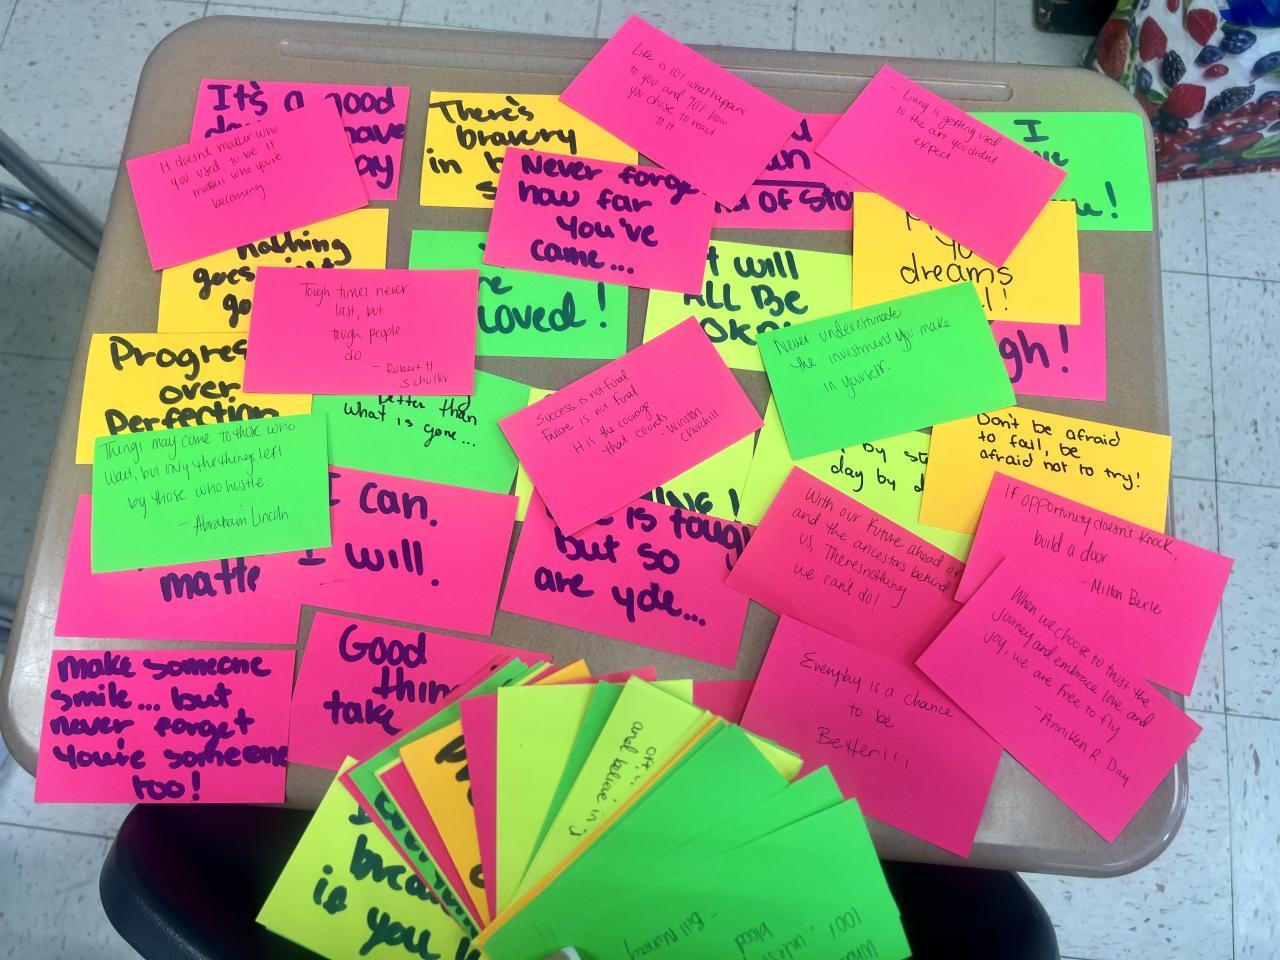 It's a good
It doesn't matter who
you used to be it
matters who you're
becoming
There's
bravery
in
Life is 10% what happens
to you and 90% how
you chose to react
to it
- Living is getting used
to the art you didnt
expect
I
Never forge
how far
you've
came...
of Sto
nothing
goes
go
Tough times never
last, but
tough people
do
- Robert H
Schuller
Loved!
It will
ALL BE
Okay
dreams
Never underestimate
the investment you make
in yourself.
gh!
Progre
over
Perfection
better than
what is gone...
Success is not final
Failure is not final
It is the courage
that counts
- Winston
Churchill
by st
day by d
Don't be afraid
to fail, be
afraid not to try!
Things may come to those who
wait, but only the things left
by those who hustle.
- Abraham Lincoln
I can.
I will.
matte
is tough
but so
are yoe...
With our future ahead of
us, and the ancestors behind
us, Theres nothing
we can't do!
If opportunity doesn't knock,
build a door.
- Milton Berle
When we choose to trust the
journey and embrace love and
joy, we are free to fly
- Anniken R. Day
Make someone
smile... but
never forget
you're someone
too!
Good
thin
take
Everyday is a chance
to be
Better!!!
and believe in
brea
is you
100%
blood
- Bill Murray